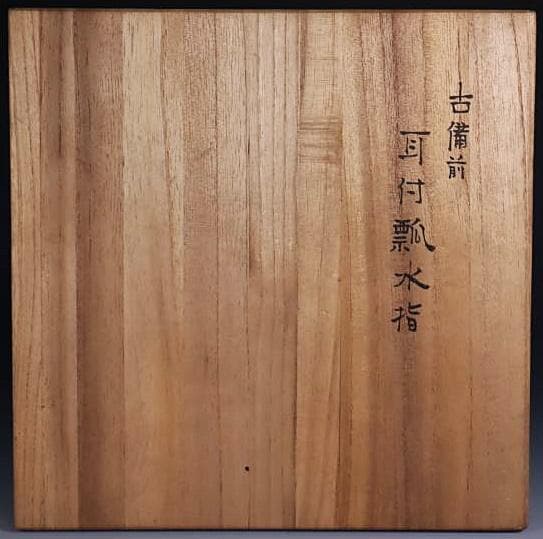 古備前
耳付瓢水指